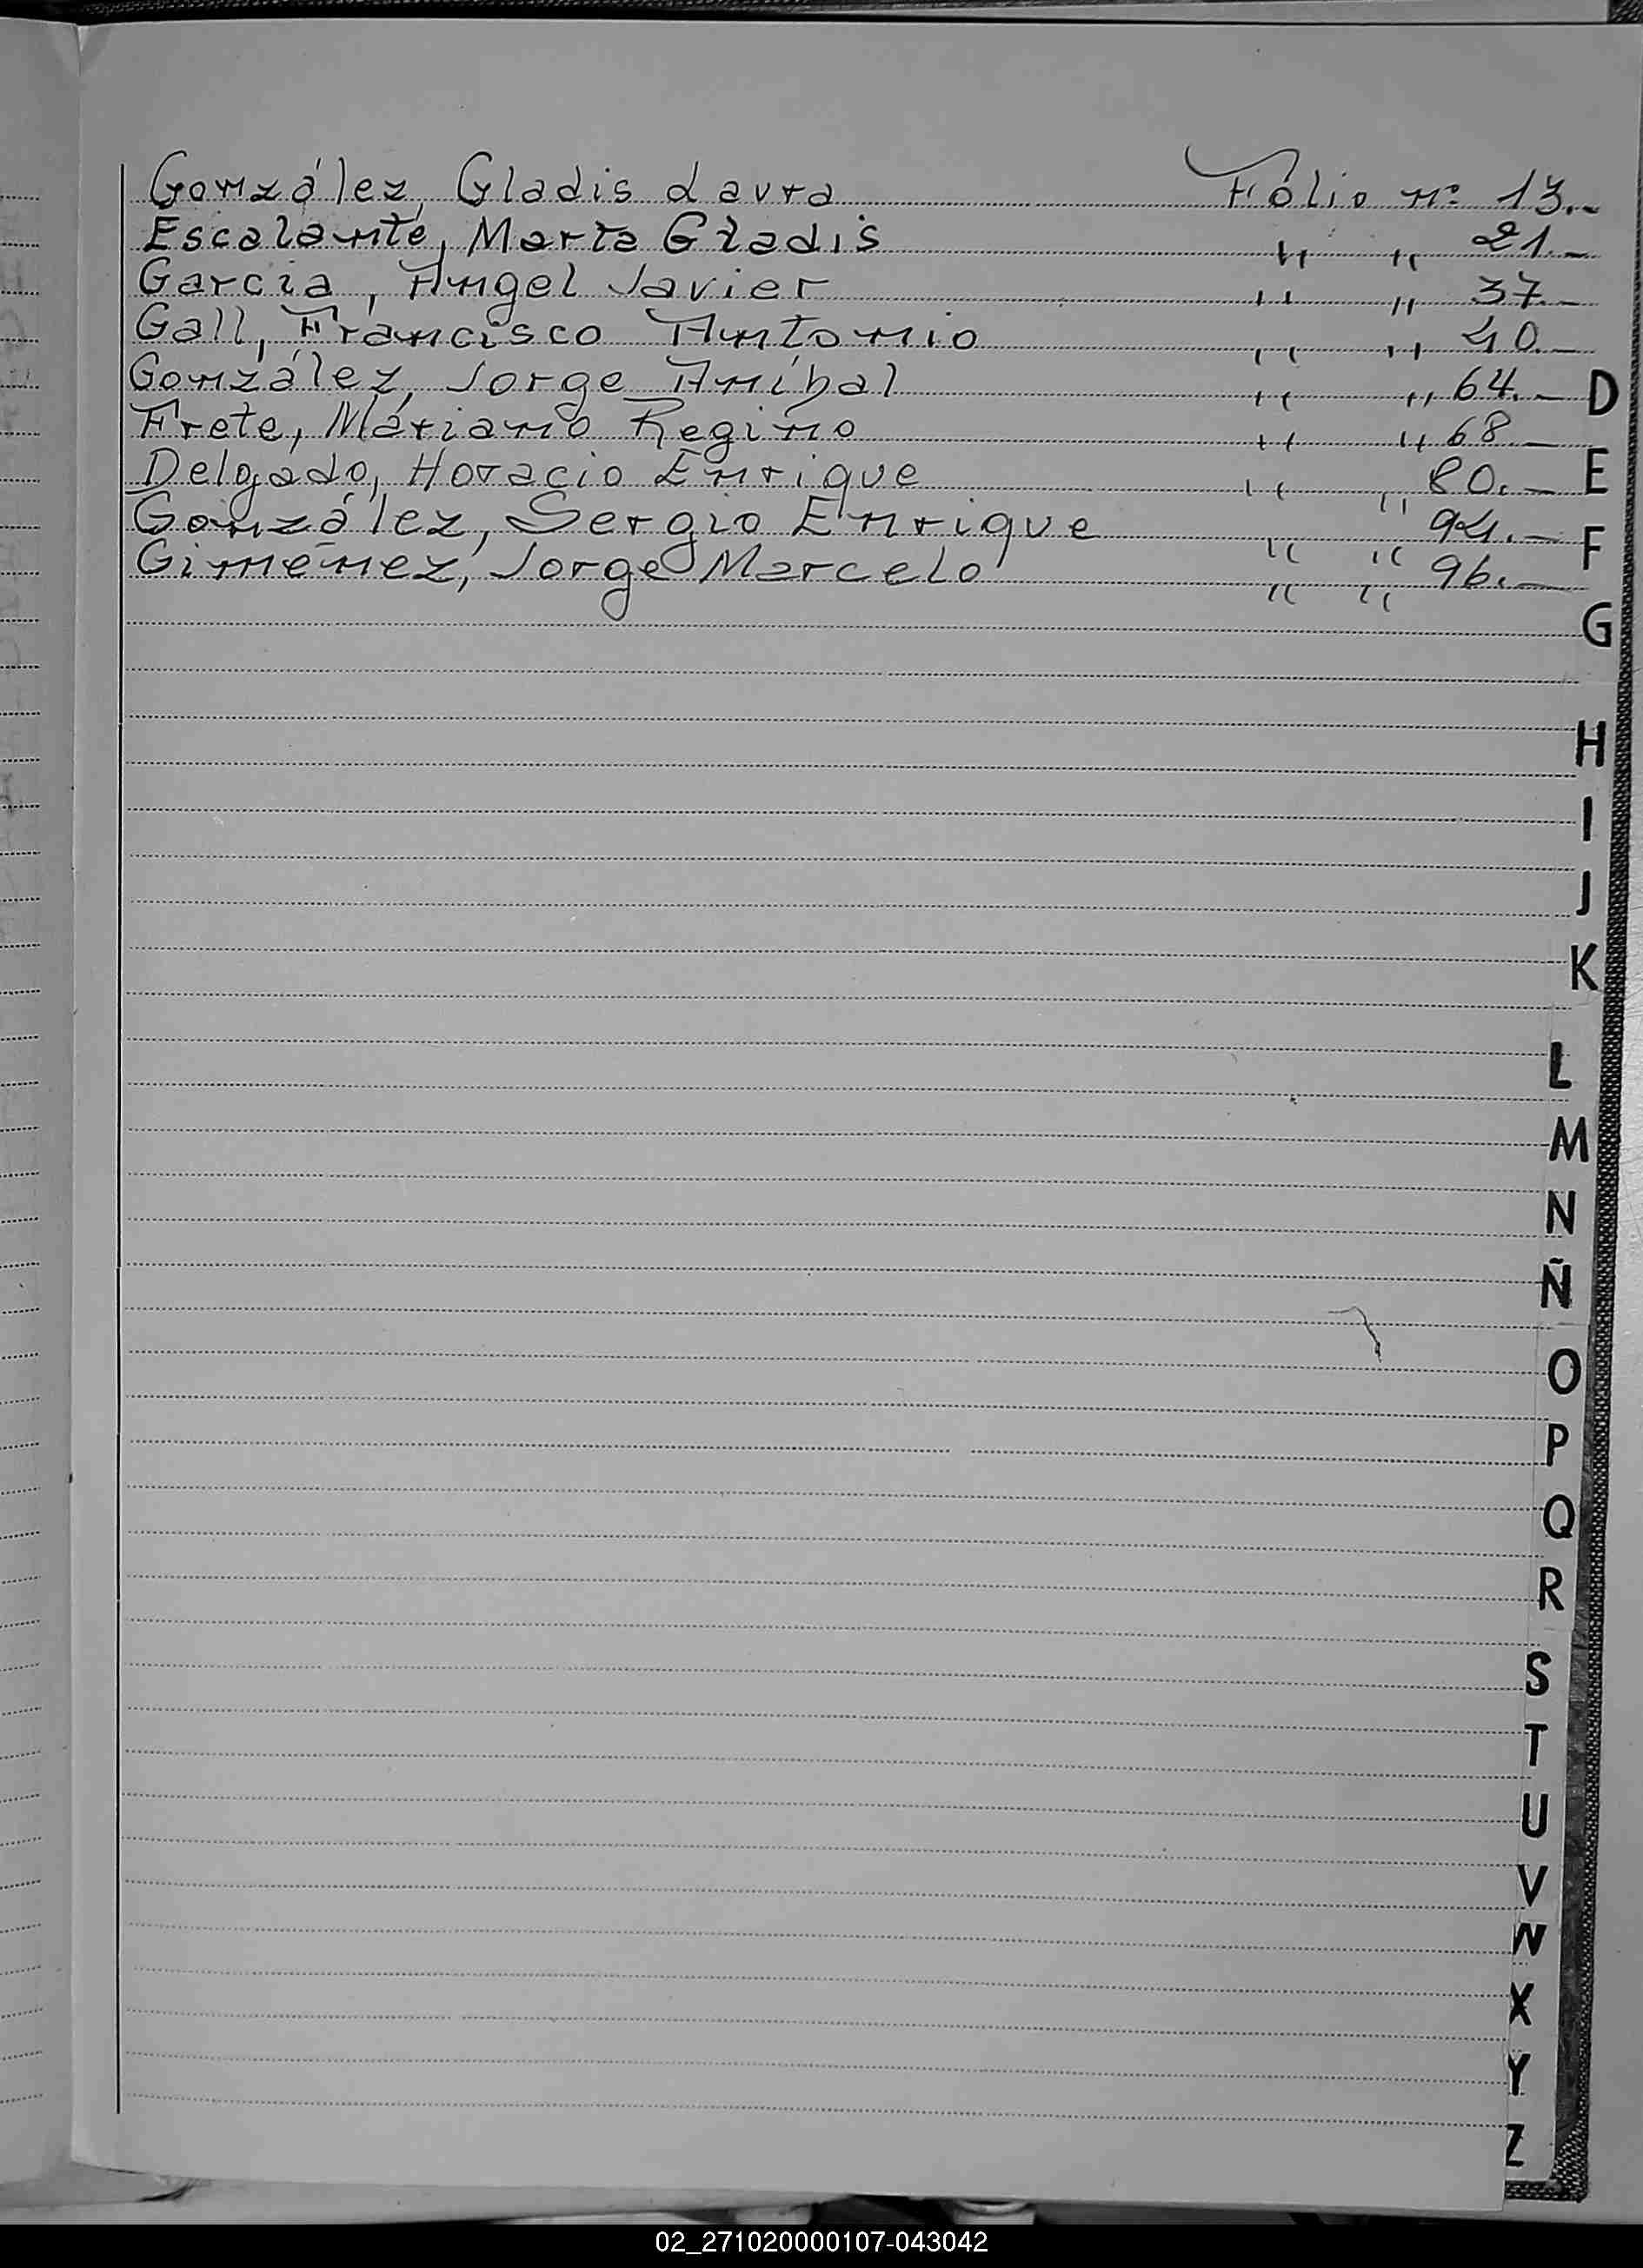 González, Gladis Laura Fólio nº 13.-
Escalante, María Gladis " " 21.-
García, Angel Javier " " 37.-
Gall, Francisco Antonio " " 40.-
González, Jorge Aníbal " " 64.-
Frete, Mariano Regino " " 68-
Delgado, Horacio Enrique " " 80.-
González, Sergio Enrique " " 94.-
Giménez, Jorge Marcelo " " 96.-
D
E
F
G
H
I
J
K
L
M
N
Ñ
O
P
Q
R
S
T
U
V
W
X
Y
Z
02_271020000107-043042